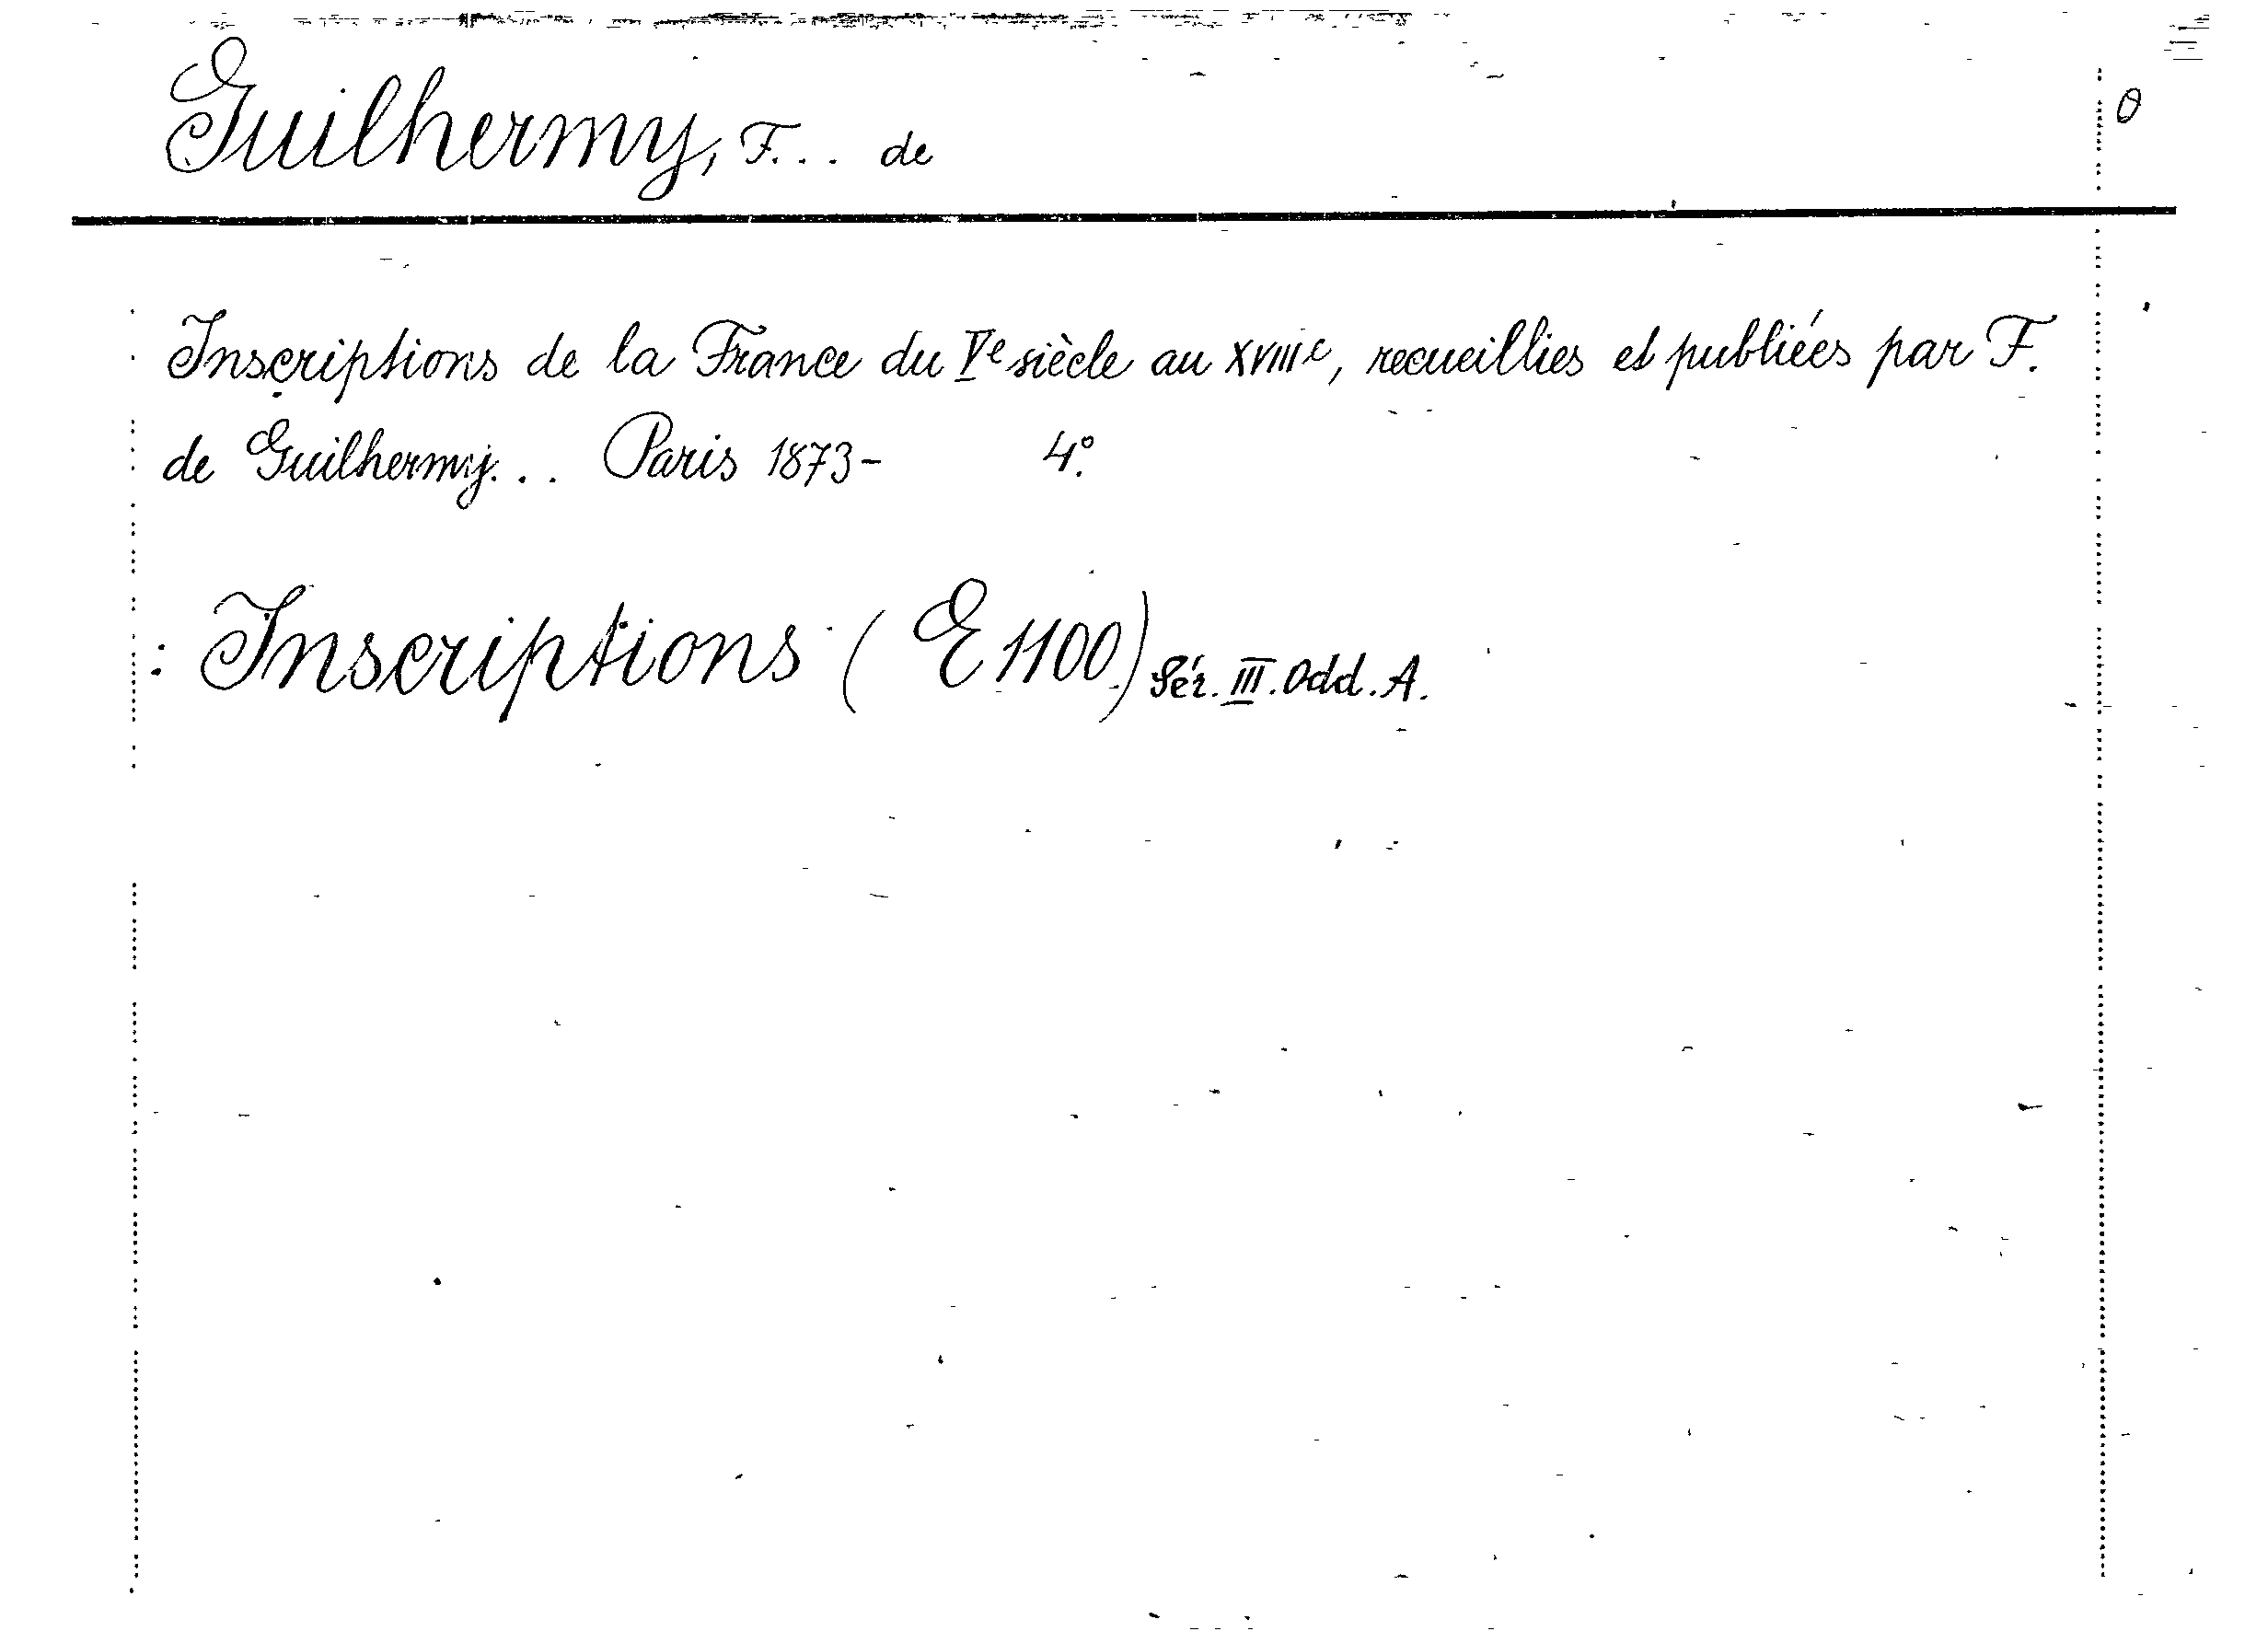 Guilhermy, F... de
0
Inscriptions de la France du Ve siècle au XVIIIe, recueillies et publiées par F.
de Guilhermy... Paris 1873- 4º.
: Inscriptions (E 1100) Sér. III. Odd. A.